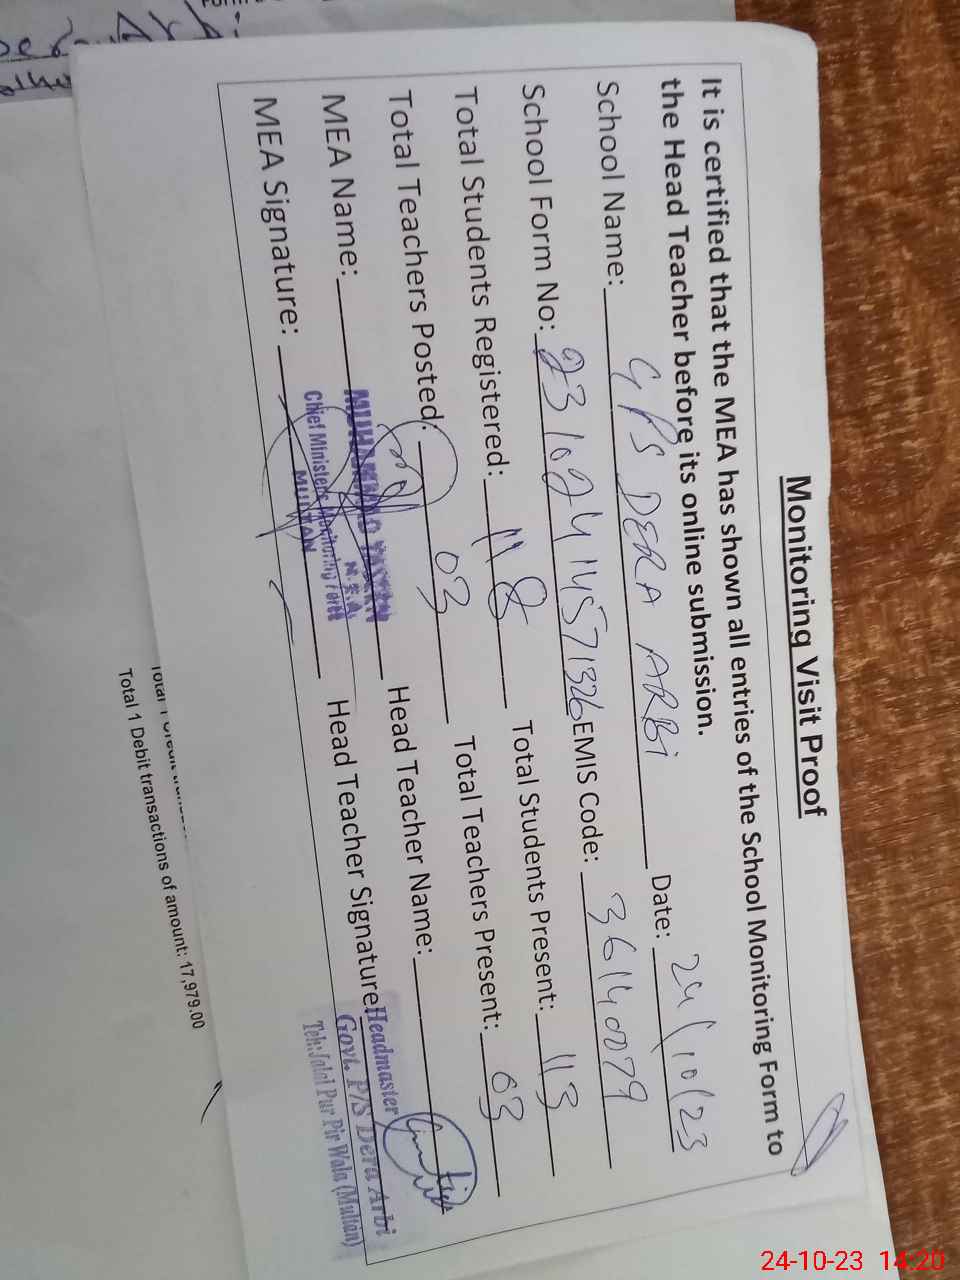 Monitoring Visit Proof
It is certified that the MEA has shown all entries of the School Monitoring Form to
the Head Teacher before its online submission.
School Name: GPS DERA ARBi Date: 24/10/23
School Form No: EMIS Code: 36140079
Total Students Registered: 118 Total Students Present: 113
Total Teachers Posted: 03 Total Teachers Present: 03
MEA Name: MUHAMMAD Head Teacher Name:
M.E.A
MEA Signature: Head Teacher Signature:
Chief Minister's Monitoring Force
MULTAN
Headmaster
Govt. P/S Dera Arbi
Teh: Jalal Pur Pir Wala (Multan)
Total 1 Debit transactions of amount: 17,979.00
24-10-23 14:20